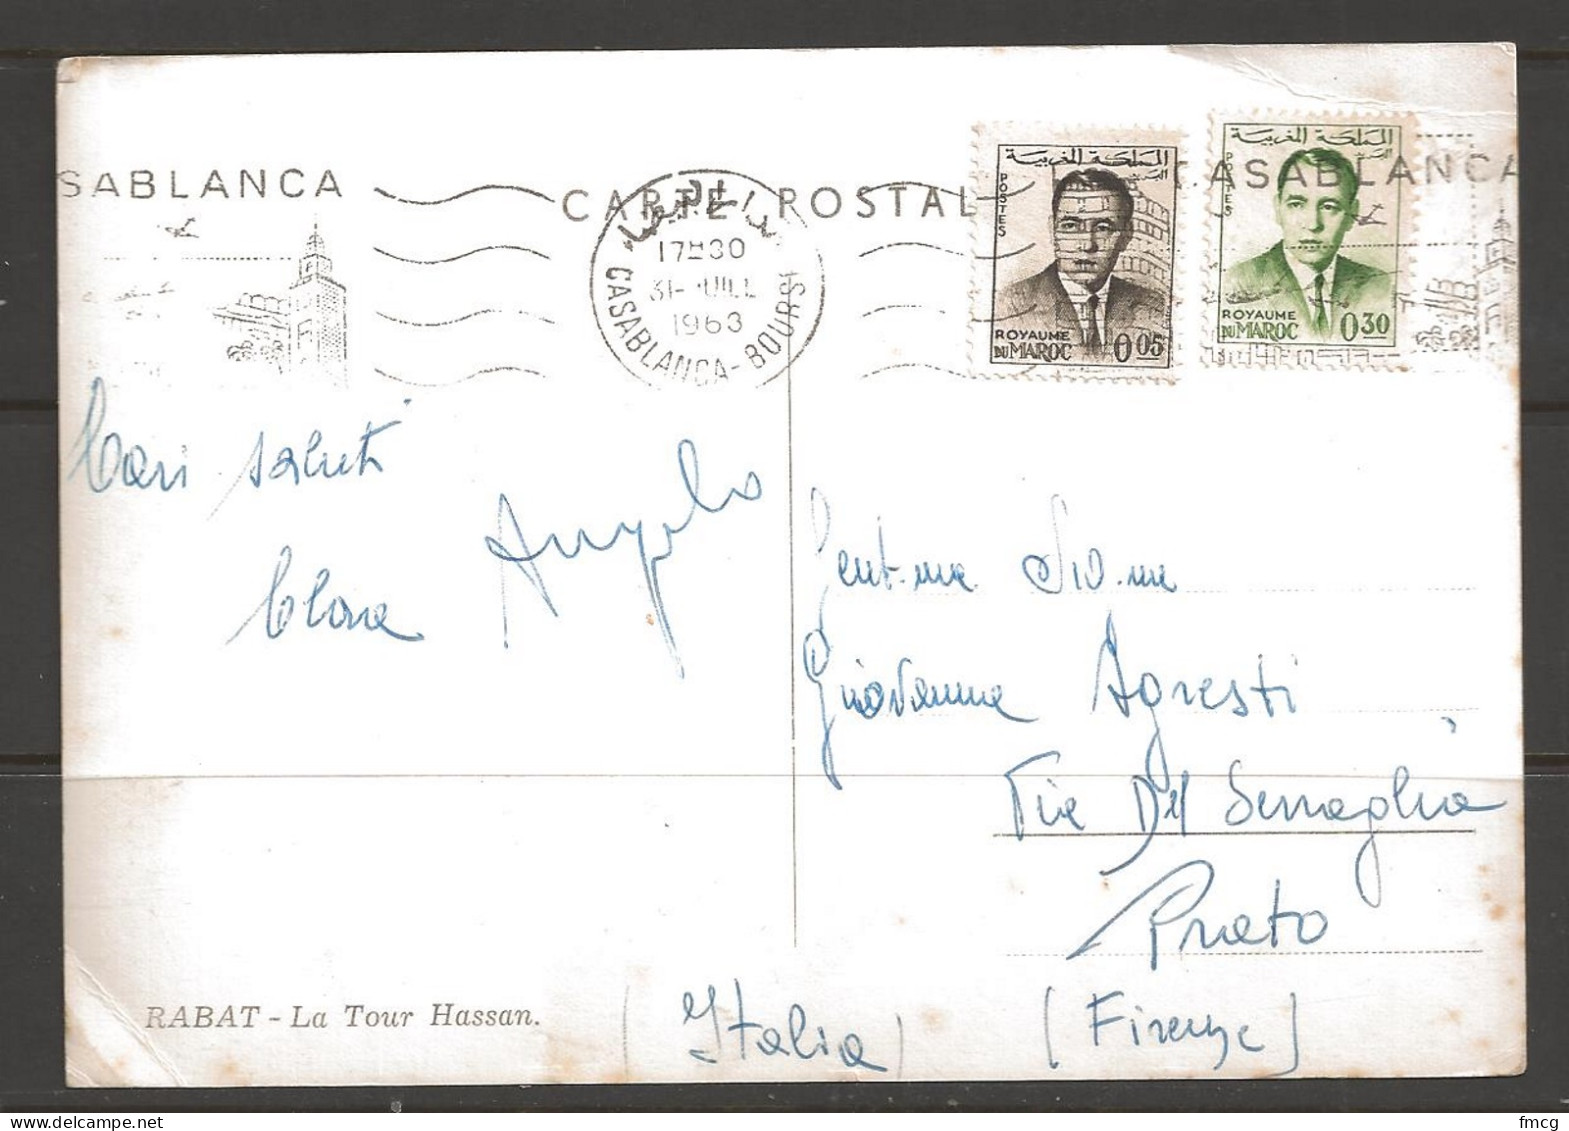 CASABLANCA
CARTE POSTALE
17H30
31- JUIL
1963
CASABLANCA-BOURSE
المملكة المغربية
البريد
POSTES
ROYAUME
DU MAROC
0 05
المملكة المغربية
البريد
POSTES
ROYAUME
DU MAROC
0 30
SABLANCA
Cari saluti
Angelo
Clara
Gent.ma Sig.na
Giovanna Agresti
Via Del Serraglio
Prato
(Firenze)
(Italia)
RABAT - La Tour Hassan.
fmcg